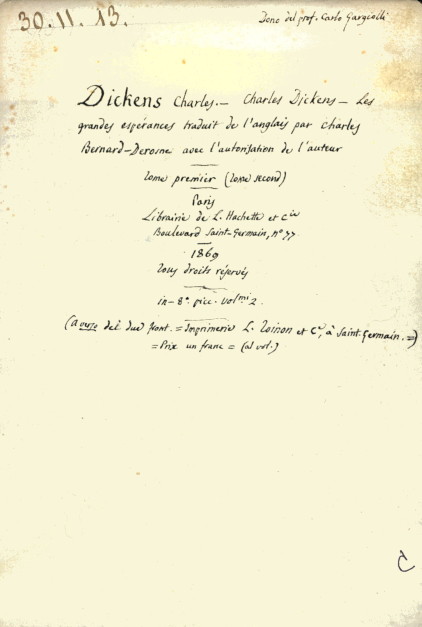 30.11.13.
Dono del prof. Carlo Gargiolli
Dickens Charles.— Charles Dickens — Les
grandes espérances traduit de l'anglais par Charles
Bernard-Derosne avec l'autorisation de l'auteur
Tome premier (Tome second)
Paris
Librairie de L. Hachette et Cie
Boulevard Saint-Germain, nº 77
1869
Tous droits réservés
in-8º picc. volmi 2.
(A verso dei due front. = Imprimerie L. Toinon et Ce, à Saint-Germain. =)
= Prix un franc = (al vol.)